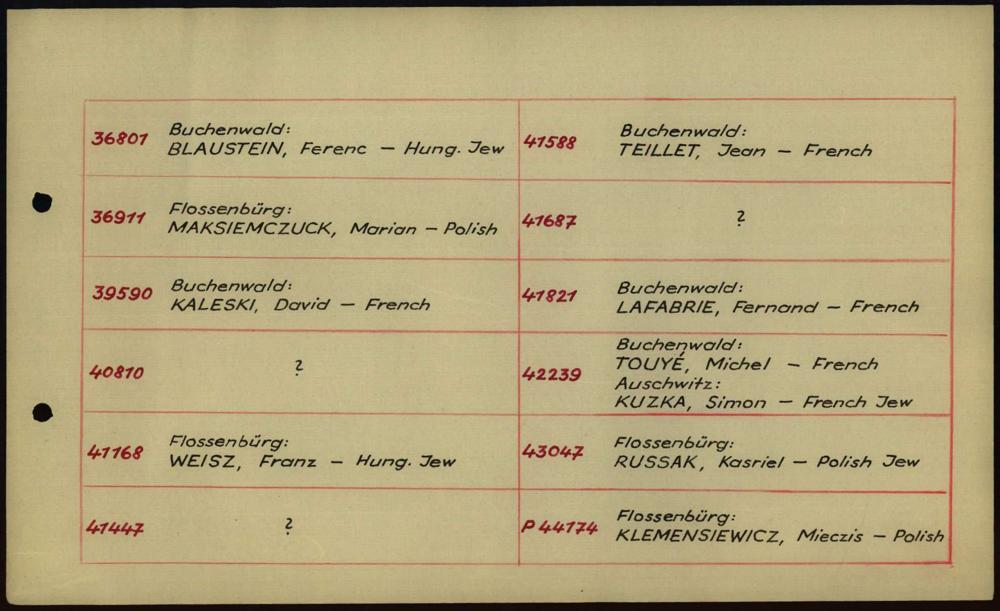 36801
Buchenwald:
BLAUSTEIN, Ferenc – Hung. Jew
36911
Flossenbürg:
MAKSIEMCZUCK, Marian – Polish
39590
Buchenwald:
KALESKI, David – French
40810
?
41168
Flossenbürg:
WEISZ, Franz – Hung. Jew
41447
?
41588
Buchenwald:
TEILLET, Jean – French
41687
?
41821
Buchenwald:
LAFABRIE, Fernand – French
42239
Buchenwald:
TOUYÉ, Michel – French
Auschwitz:
KUZKA, Simon – French Jew
43047
Flossenbürg:
RUSSAK, Kasriel – Polish Jew
P 44174
Flossenbürg:
KLEMENSIEWICZ, Mieczis – Polish